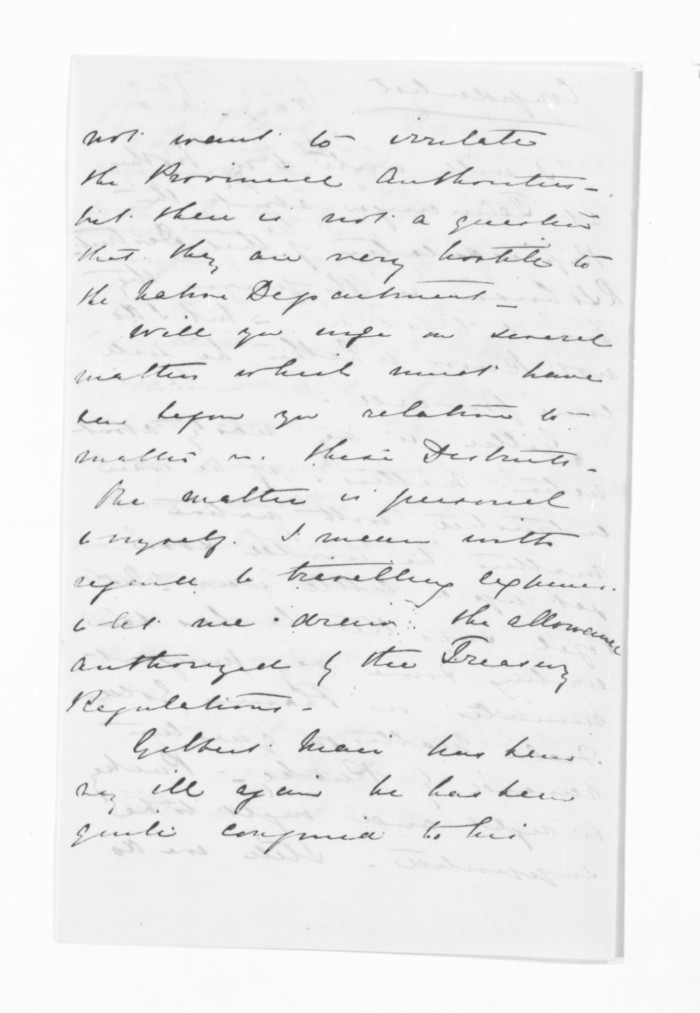 not want to irritate
the Provincial Authorities -
but there is not a question
that they are very hostile to
the Native Department -
Will you urge on several
matters which must have
been before you relative to
matters in these Districts -
One matter is personal
to myself. I mean with
regard to travelling expenses.
to let me draw the allowance
authorized by the Treasury
Regulations -
Gilbert Mair has been
very ill again he has been
quite confined to his